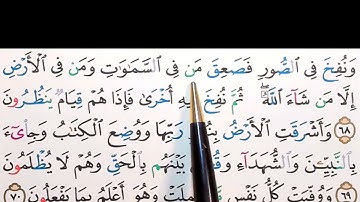 وَنُفِخَ فِي ٱلصُّورِ فَصَعِقَ مَن فِي ٱلسَّمَٰوَٰتِ وَمَن فِي ٱلْأَرْضِ
إِلَّا مَن شَآءَ ٱللَّهُ ۖ ثُمَّ نُفِخَ أُخْرَىٰ فَإِذَا هُمْ قِيَامٌ يَنظُرُونَ
٦٨ وَأَشْرَقَتِ ٱلْأَرْضُ رَبِّهَا وَوُضِعَ ٱلْكِتَٰبُ وَجِا۟يٓءَ
بِٱلنَّبِيِّـۧنَ وَٱلشُّهَدَآءِ بَيْنَهُم بِٱلْحَقِّ وَهُمْ لَا يُظْلَمُونَ
٦٩ وَوُفِّيَتْ كُلُّ نَفْسٍ وَهُوَ أَعْلَمُ بِمَا يَفْعَلُونَ ٧٠